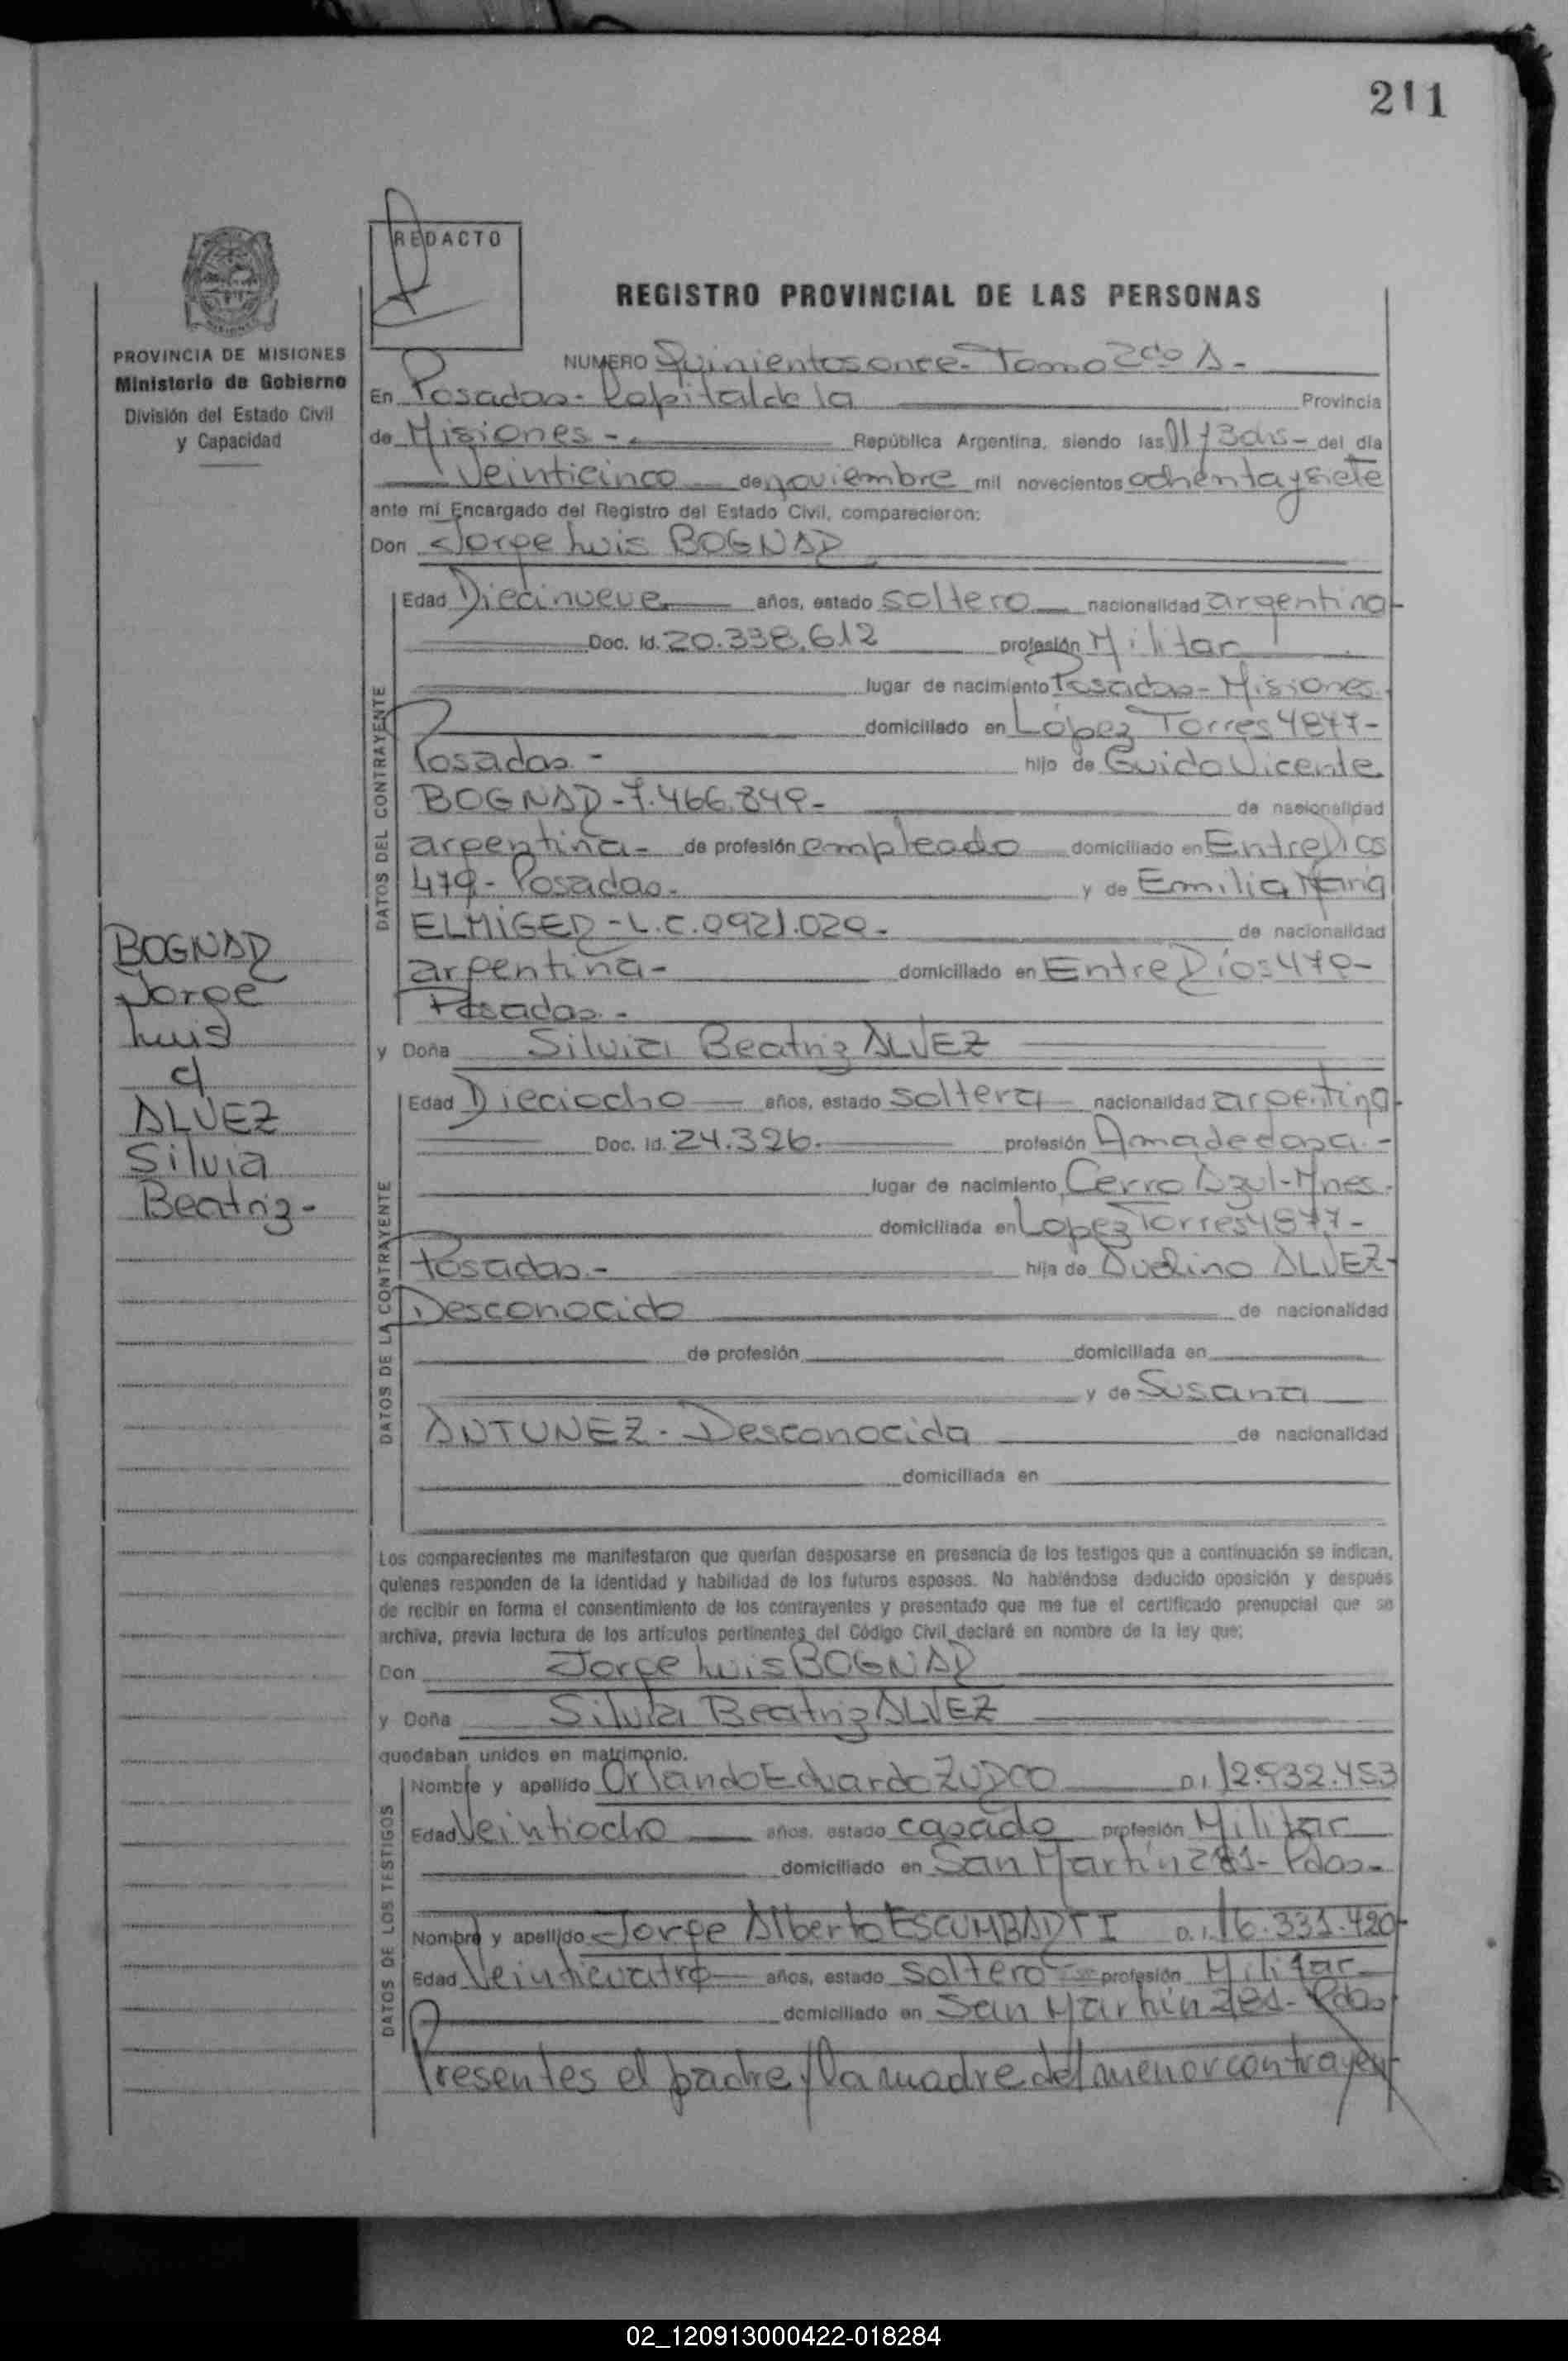 211
REDACTO
REGISTRO PROVINCIAL DE LAS PERSONAS
PROVINCIA DE MISIONES
Ministerio de Gobierno
División del Estado Civil
y Capacidad
NUMERO Quinientos once - Tomo 2do A -
En Posadas - Capital de la Provincia
de Misiones - República Argentina, siendo las 11 y 30hs - del día
Veinticinco de noviembre mil novecientos ochenta y siete
ante mí Encargado del Registro del Estado Civil, comparecieron:
Don Jorge Luis BOGNAR
DATOS DEL CONTRAYENTE
Edad Diecinueve años, estado soltero nacionalidad argentina
Doc. Id. 20.338.612 profesión Militar
lugar de nacimiento Posadas - Misiones.
domiciliado en López Torres 4877 -
Posadas - hijo de Guido Vicente
BOGNAR - 7.466.849 - de nacionalidad
argentina - de profesión empleado domiciliado en Entre Rios
479 - Posadas - y de Emilia Maria
ELMIGER - L.C. 0921.029 - de nacionalidad
argentina - domiciliado en Entre Ríos 479 -
Posadas -
BOGNAR
Jorge
Luis
c/
ALVEZ
Silvia
Beatriz -
y Doña Silvia Beatriz ALVEZ
DATOS DE LA CONTRAYENTE
Edad Dieciocho años, estado soltera nacionalidad argentina
Doc. Id. 24.326. profesión Ama de casa -
lugar de nacimiento Cerro Azul - Mnes.
domiciliada en López Torres 4877 -
Posadas - hija de Avelino ALVEZ -
Desconocido de nacionalidad
de profesión domiciliada en
y de Susana
ANTUNEZ - Desconocida de nacionalidad
domiciliada en
Los comparecientes me manifestaron que querían desposarse en presencia de los testigos que a continuación se indican,
quienes responden de la identidad y habilidad de los futuros esposos. No habiéndose deducido oposición y después
de recibir en forma el consentimiento de los contrayentes y presentado que me fue el certificado prenupcial que se
archiva, previa lectura de los artículos pertinentes del Código Civil declaré en nombre de la ley que:
Don Jorge Luis BOGNAR
y Doña Silvia Beatriz ALVEZ
quedaban unidos en matrimonio.
DATOS DE LOS TESTIGOS
Nombre y apellido Orlando Eduardo ZURCO D.I. 12.932.453
Edad Veintiocho años, estado casado profesión Militar
domiciliado en San Martín 281 - Pdas -
Nombre y apellido Jorge Alberto ESCUMBARTI D.I. 16.331.420 -
Edad Veinticuatro años, estado soltero profesión Militar
domiciliado en San Martín 281 - Pdas
Presentes el padre y la madre del menor contrayen
02_120913000422-018284